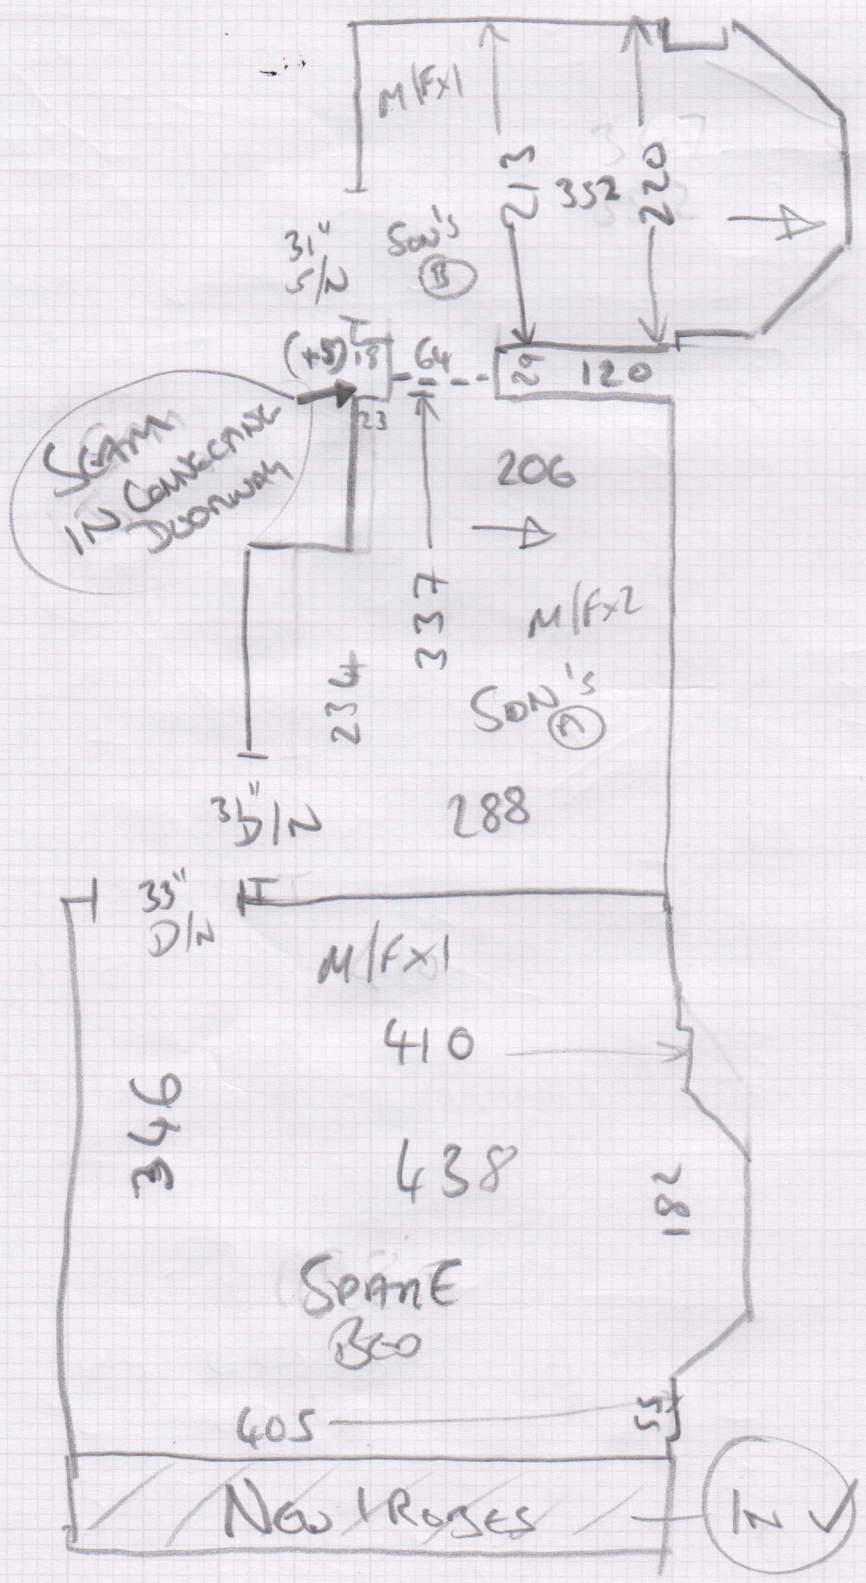 M/Fx1
213
352
220
31"
S/N
SON'S
B
(+5)
18
64
29
120
23
SEAM
IN CONNECTING
DOORWAY
206
337
M/Fx2
234
SON'S
A
31"
D/N
288
33"
D/N
M/Fx1
410
346
438
182
SPARE
BED
405
55
NEW ROBES
IN ✓